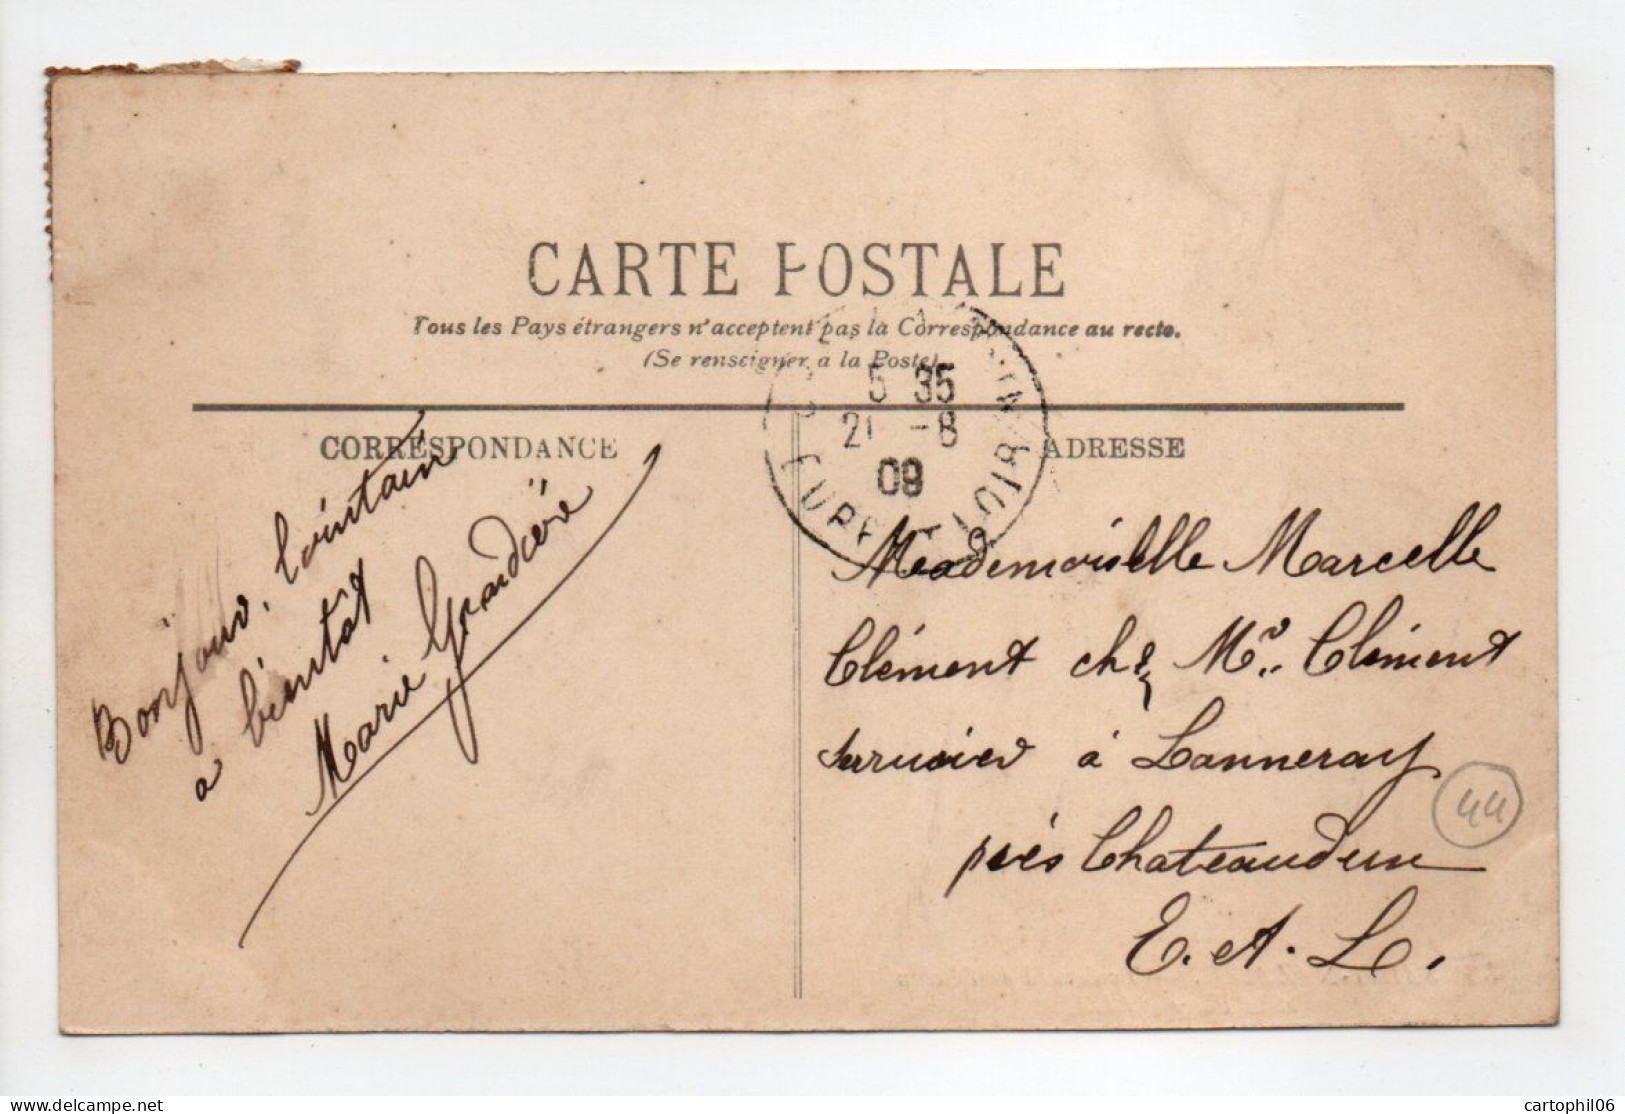 CARTE POSTALE
Tous les Pays étrangers n'acceptent pas la Correspondance au recto.
(Se renseigner à la Poste)
5 35
21 -8
09
EURE LOIR
CORRESPONDANCE
ADRESSE
Bonjour, lointain
a bientôt
Marie Grandière
Mademoiselle Marcelle
Clément chez Mr. Clément
serrurier à Lanneray
près Chateaudun
E. et. L.
44
cartophil06